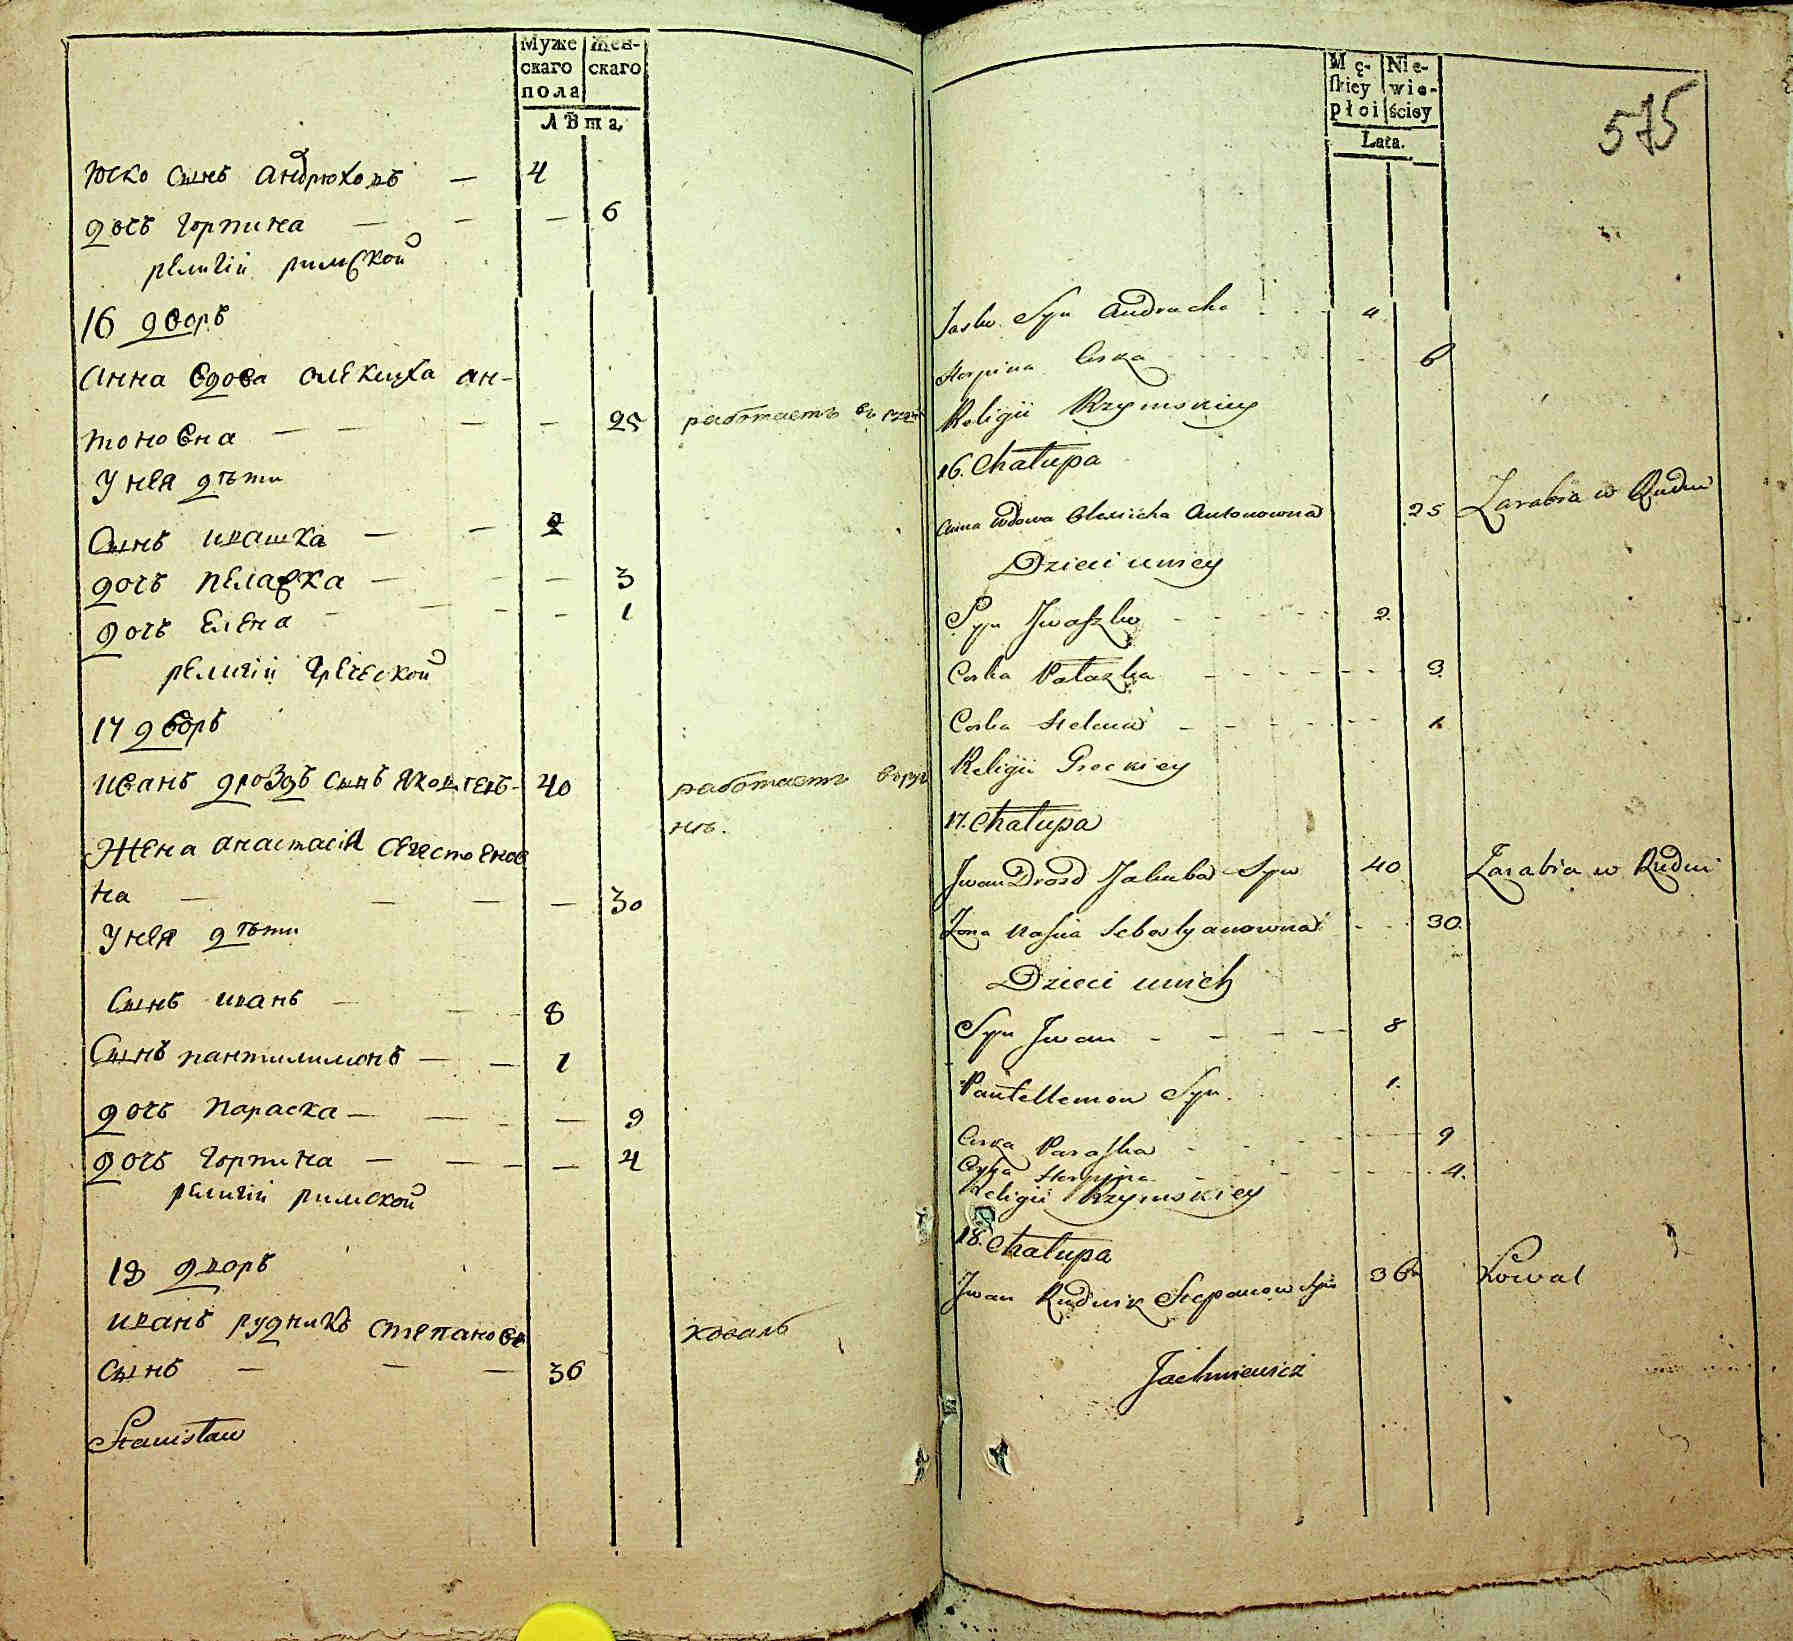 Муже
скаго
пола
Жен-
скаго
Лѣта,
Юско сынъ андрюховъ — 4
дочь горпина — — — 6
религіи римской
16 дворъ
Анна вдова олексиха ан-
тоновна — — — — 25 работаетъ въ
У нея дѣти
Сынъ ивашка — — 2
дочь пелашка — — — 3
дочь Елена — — — 1
религіи греческой
17 дворъ
иванъ дроздъ сынъ 40 работаетъ в руд
нѣ.
Жена анастасія
на — — — — 30
У нея дѣти
Сынъ иванъ — — 8
Сынъ пантилимонъ — — 1
дочь Параска — — — 9
дочь горпина — — — 4
религіи римской
18 дворъ
иванъ рудникъ степановъ коваль
сынъ — — — 36
Stanisław
Mę-
skiey
płci
Nie-
wie-
ściey
Lata.
575
Jasko Syn Andrucha 4
Horpina Curka 6
Religii Rzymskiey
16. Chałupa
Anna Wdowa Olexicha Antonowna 25 Zarabia w Rudni
Dzieci u niey
Syn Jwaszko 2.
Corka Pałazka 3.
Corka Helena 1.
Religii Greckiey
17. Chałupa
Jwan Drozd Jakuba Syn 40 Zarabia w Rudni
Zona Nasća Sebastyanowna 30.
Dzieci u nich
Syn Jwan 8
Pantellemon Syn. 1.
Curka Paraska 9
Curka Horpina 4.
Religii Rzymskiey
18. Chałupa
Jwan Rudnik Stepanow Syn 36 Kowal
Jachniewicz